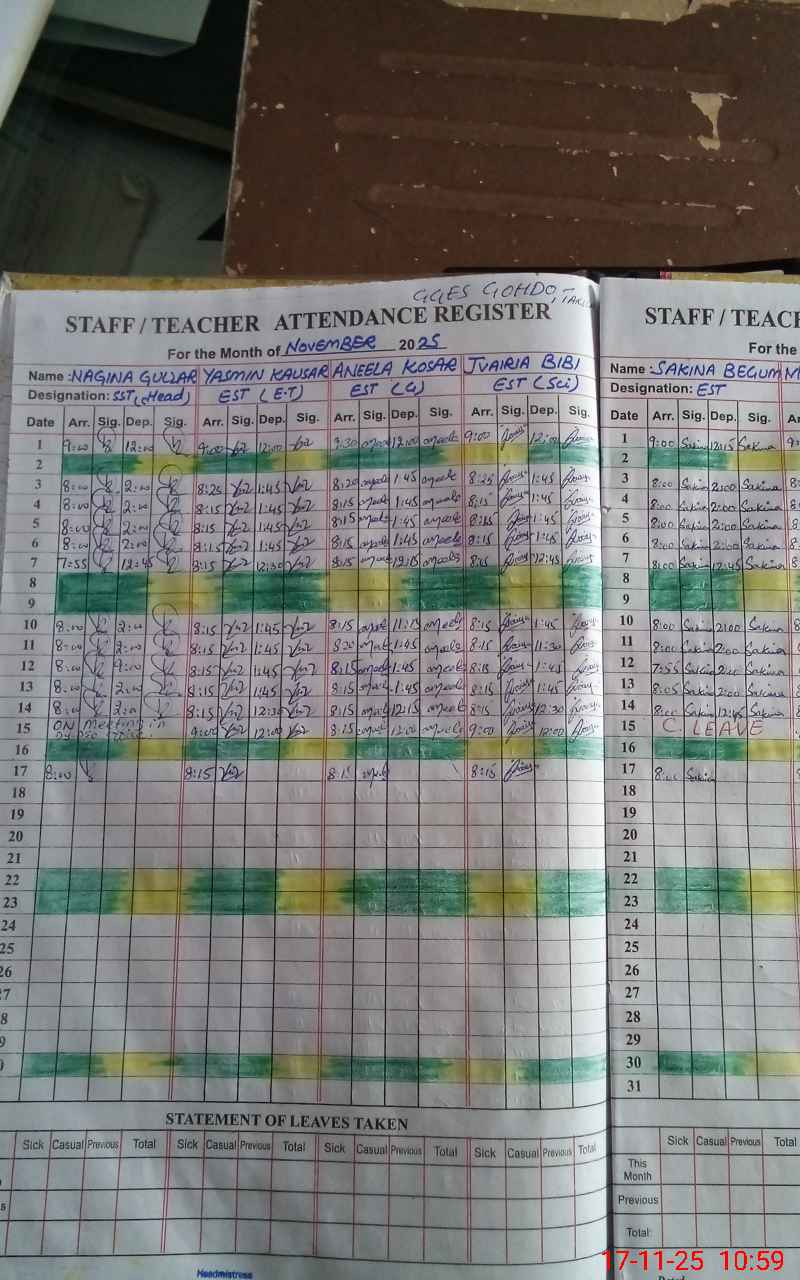 GGES GOHDO,
STAFF / TEACHER ATTENDANCE REGISTER
For the Month of NOVEMBER 2025
Name :NAGINA GULZAR YASMIN KAUSAR ANEELA KOSAR JVAIRIA BIBI
Designation: SST (Head) EST (E.T) EST (G) EST (Sci)
Date Arr. Sig. Dep. Sig. Arr. Sig. Dep. Sig. Arr. Sig. Dep. Sig. Arr. Sig. Dep. Sig.
1 9:00 12:00 9:00 12:00 9:30 12:00 9:00 12:00
2
3 8:00 2:00 8:25 1:45 8:20 1:45 8:25 1:45
4 8:00 2:00 8:15 1:45 8:15 1:45 8:15 1:45
5 8:00 2:00 8:15 1:45 8:15 1:45 8:15 1:45
6 8:00 2:00 8:15 1:45 8:15 1:45 8:15 1:45
7 7:55 12:45 8:15 12:30 8:15 12:15 8:15 12:45
8
9
10 8:00 2:00 8:15 1:45 8:15 11:15 8:15 1:45
11 8:00 2:00 8:15 1:45 8:20 1:45 8:15 11:30
12 8:00 8:15 1:45 8:15 1:45 8:15 1:45
13 8:00 2:00 8:15 1:45 8:15 1:45 8:15 1:45
14 8:00 2:00 8:15 12:30 8:15 12:15 8:15 12:30
15 ON Meeting in 9:00 12:00 8:15 12:00 9:00 12:00
16
17 8:00 8:15 8:15 8:15
18
19
20
21
22
23
24
25
26
27
8
9
STATEMENT OF LEAVES TAKEN
Sick Casual Previous Total Sick Casual Previous Total Sick Casual Previous Total Sick Casual Previous Total
Headmistress
STAFF / TEAC
For the
Name :SAKINA BEGUM M
Designation: EST
Date Arr. Sig. Dep. Sig. Arr.
1 9:00 Sakina 12:15 Sakina
2
3 8:00 Sakina 2:00 Sakina
4 8:00 Sakina 2:00 Sakina
5 8:00 Sakina 2:00 Sakina
6 8:00 Sakina 2:00 Sakina
7 8:00 Sakina 12:45 Sakina
8
9
10 8:00 Sakina 2:00 Sakina
11 8:00 Sakina 2:00 Sakina
12 7:55 Sakina 2:00 Sakina
13 8:05 Sakina 2:00 Sakina
14 8:00 Sakina 12:45 Sakina
15 C. LEAVE
16
17 8:00 Sakina
18
19
20
21
22
23
24
25
26
27
28
29
30
31
Sick Casual Previous Total
This Month
Previous
Total:
17-11-25 10:59